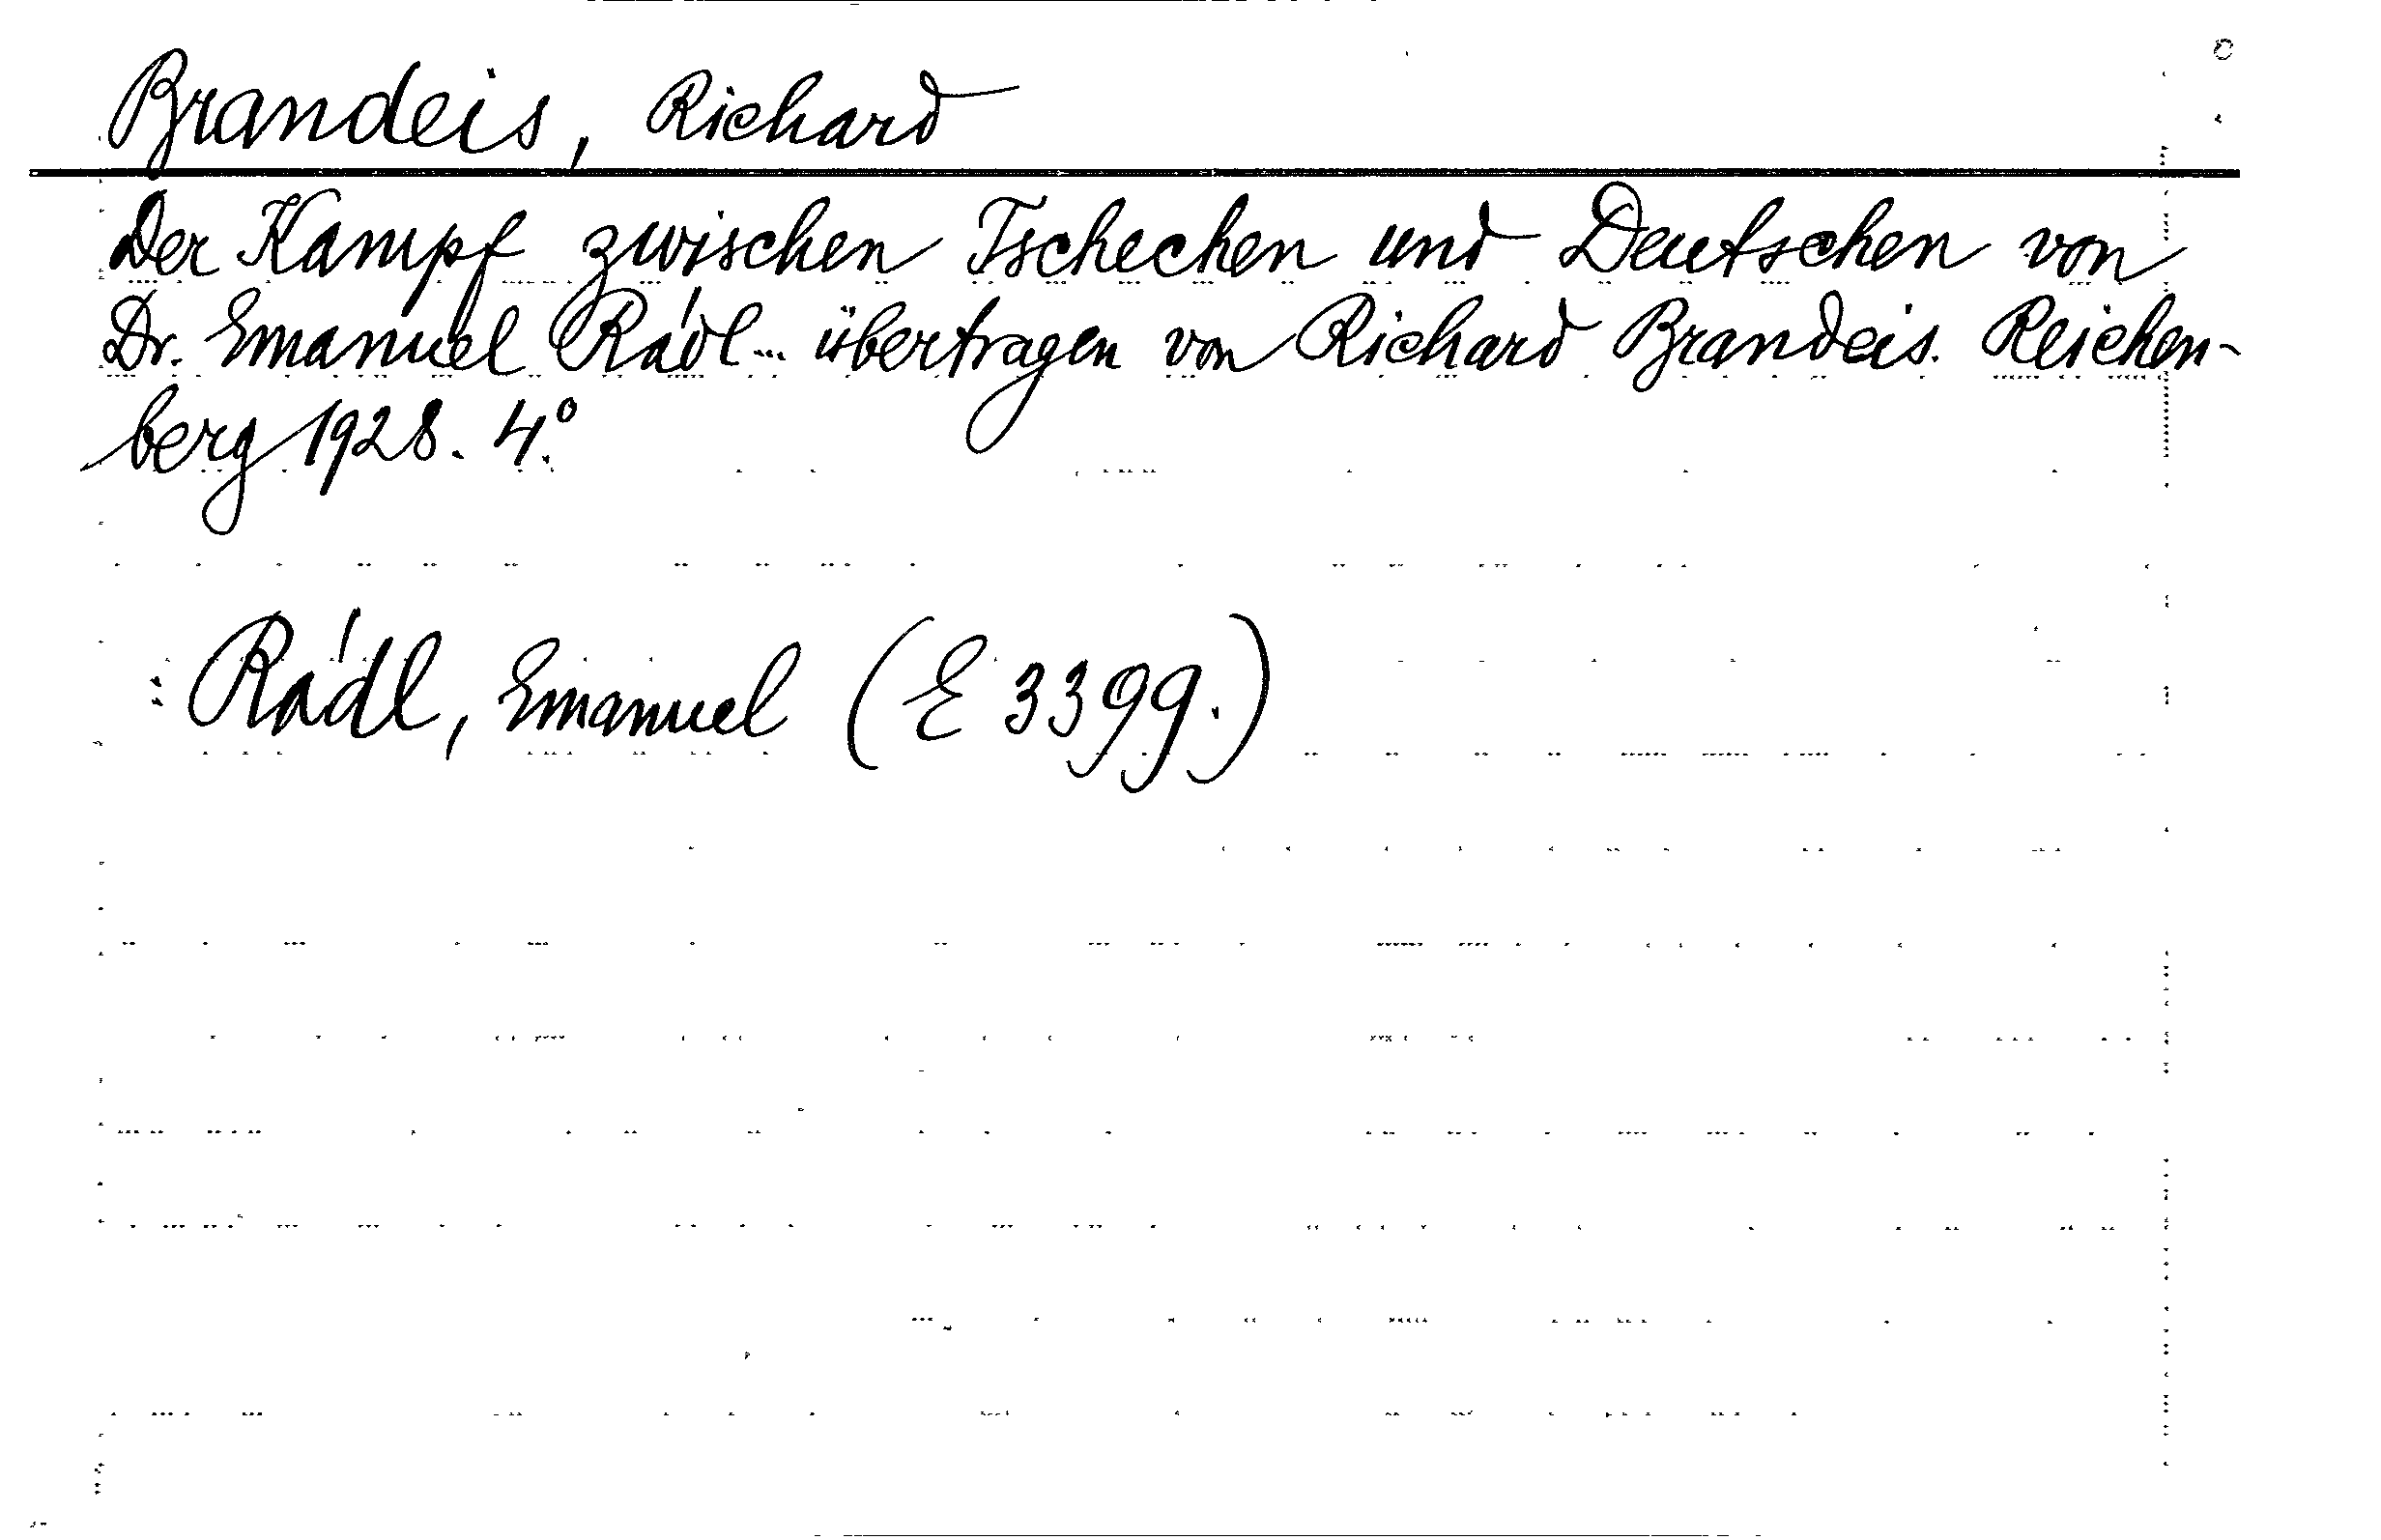 Brandeis, Richard
Der Kampf zwischen Tschechen und Deutschen von
Dr. Emanuel Rádl... übertragen von Richard Brandeis. Reichen-
berg 1928. 4.º
: Rádl, Emanuel (E 3399.)